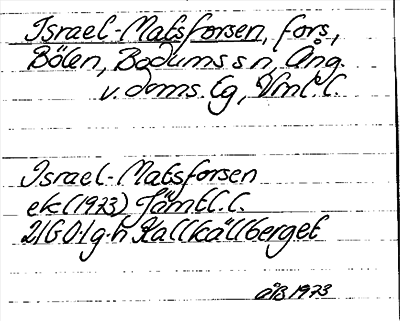 Israel-Matsforsen, fors,
Bölen, Bodums sn, Ång.
v. doms. lg, Vml. l.
Israel-Matsforsen
ek (1973) Jämtl. l.
21G 0-1 g-h Kallkällberget
ÅB 1973